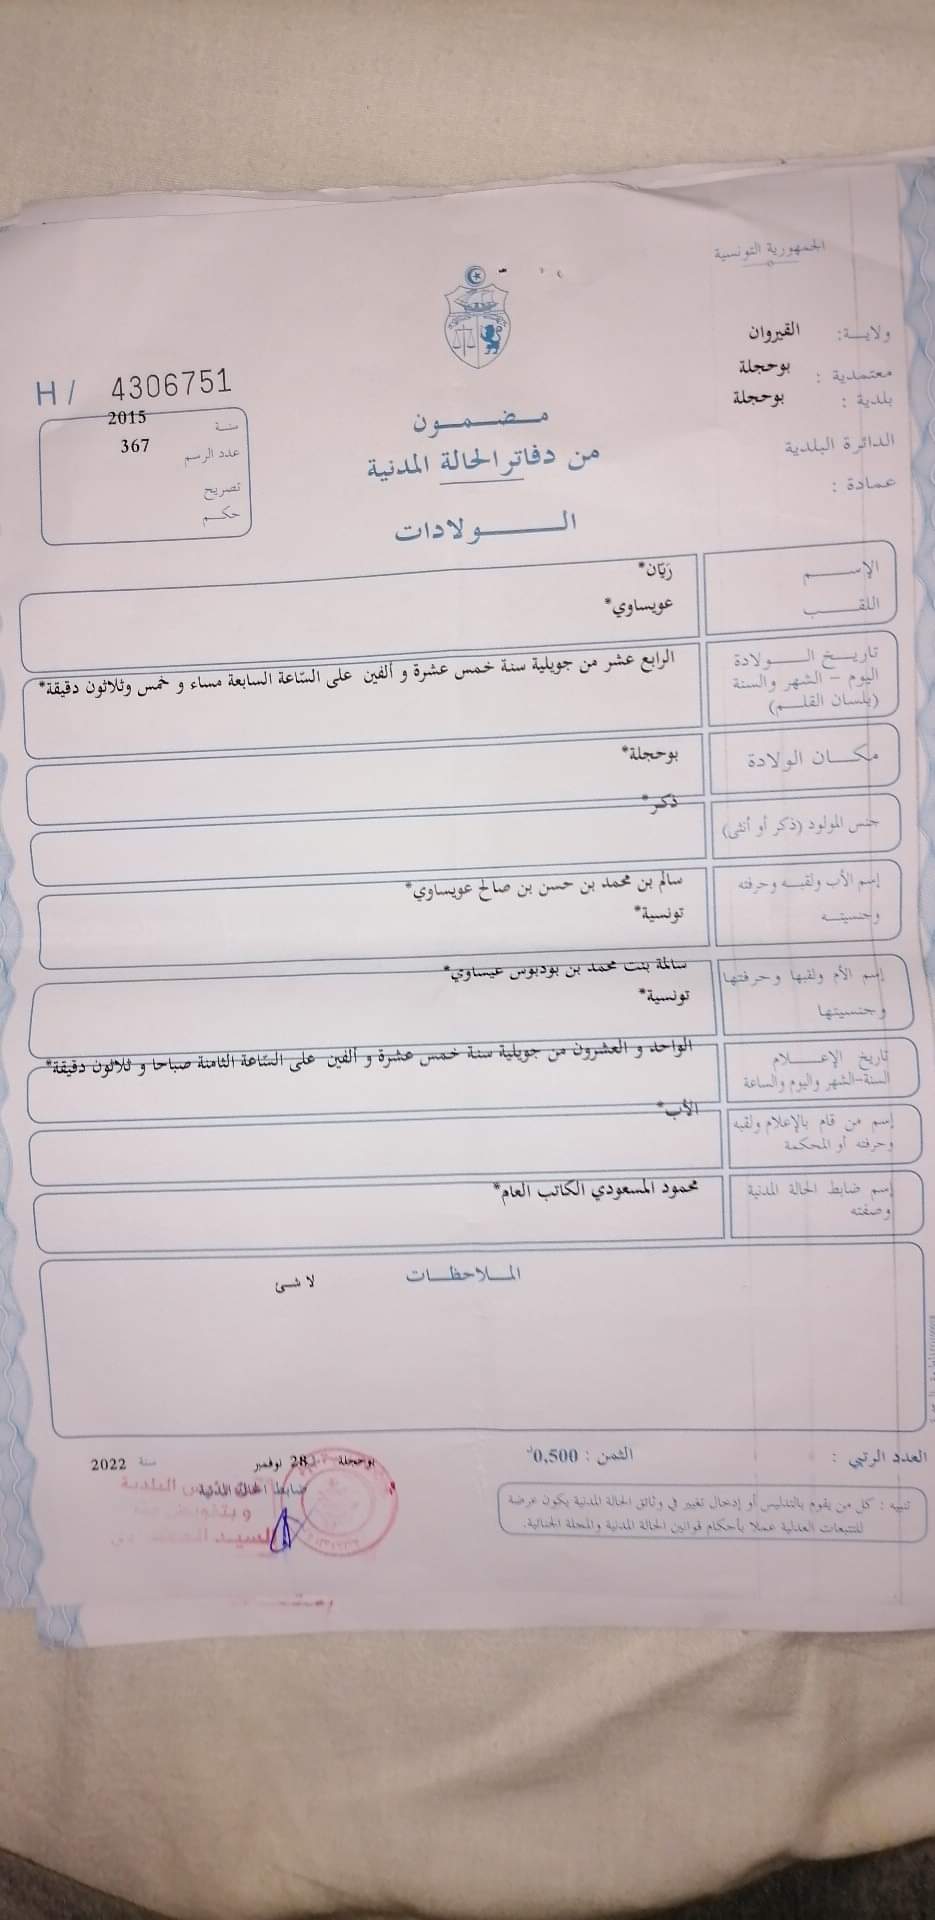 الجمهورية التونسية
ولايـــة: القيروان
معتمدية : بوحجلة
بلدية : بوحجلة
الدائرة البلدية
عمادة :
H/ 4306751
سنـة 2015
عدد الرسم 367
تصريح
حكـــم
مــضــمــــون
من دفاتر الحالة المدنية
الـــــــــولادات
الإســـــــم ريّان*
اللقـــــب عويساوي*
تاريــــخ الــــــولادة
اليوم – الشهر والسنة
(بلسان القلـــم)
الرابع عشر من جويلية سنة خمس عشرة و ألفين على السّاعة السابعة مساء و خمس وثلاثون دقيقة*
مكــــان الولادة بوحجلة*
جنس المولود (ذكر أو أنثى) ذكر*
إسم الأب ولقبـــه وحرفته سالم بن محمد بن حسن بن صالح عويساوي*
وجنسيتـــه تونسية*
إسم الأم ولقبها وحرفتها سالمة بنت محمد بن بودبوس عيساوي*
وجنسيتها تونسية*
تاريخ الإعـــــلام
السنة-الشهر واليوم والساعة
الواحد و العشرون من جويلية سنة خمس عشرة و ألفين على السّاعة الثامنة صباحا و ثلاثون دقيقة*
إسم من قام بالإعلام ولقبه الأب*
وحرفته أو المحكمة
إسم ضابط الحالة المدنية محمود المسعودي الكاتب العام*
وصفته
المـلاحظـــات
لا شئ
العدد الرتبي :
الثمن : 0,500د
بوحجلة 28 نوفمبر سنة 2022
ضابط الحالة المدنية
تنبيه : كل من يقوم بالتدليس أو إدخال تغيير في وثائق الحالة المدنية يكون عرضة
للتتبعات العدلية عملا بأحكام قوانين الحالة المدنية والمجلة الجنائية.